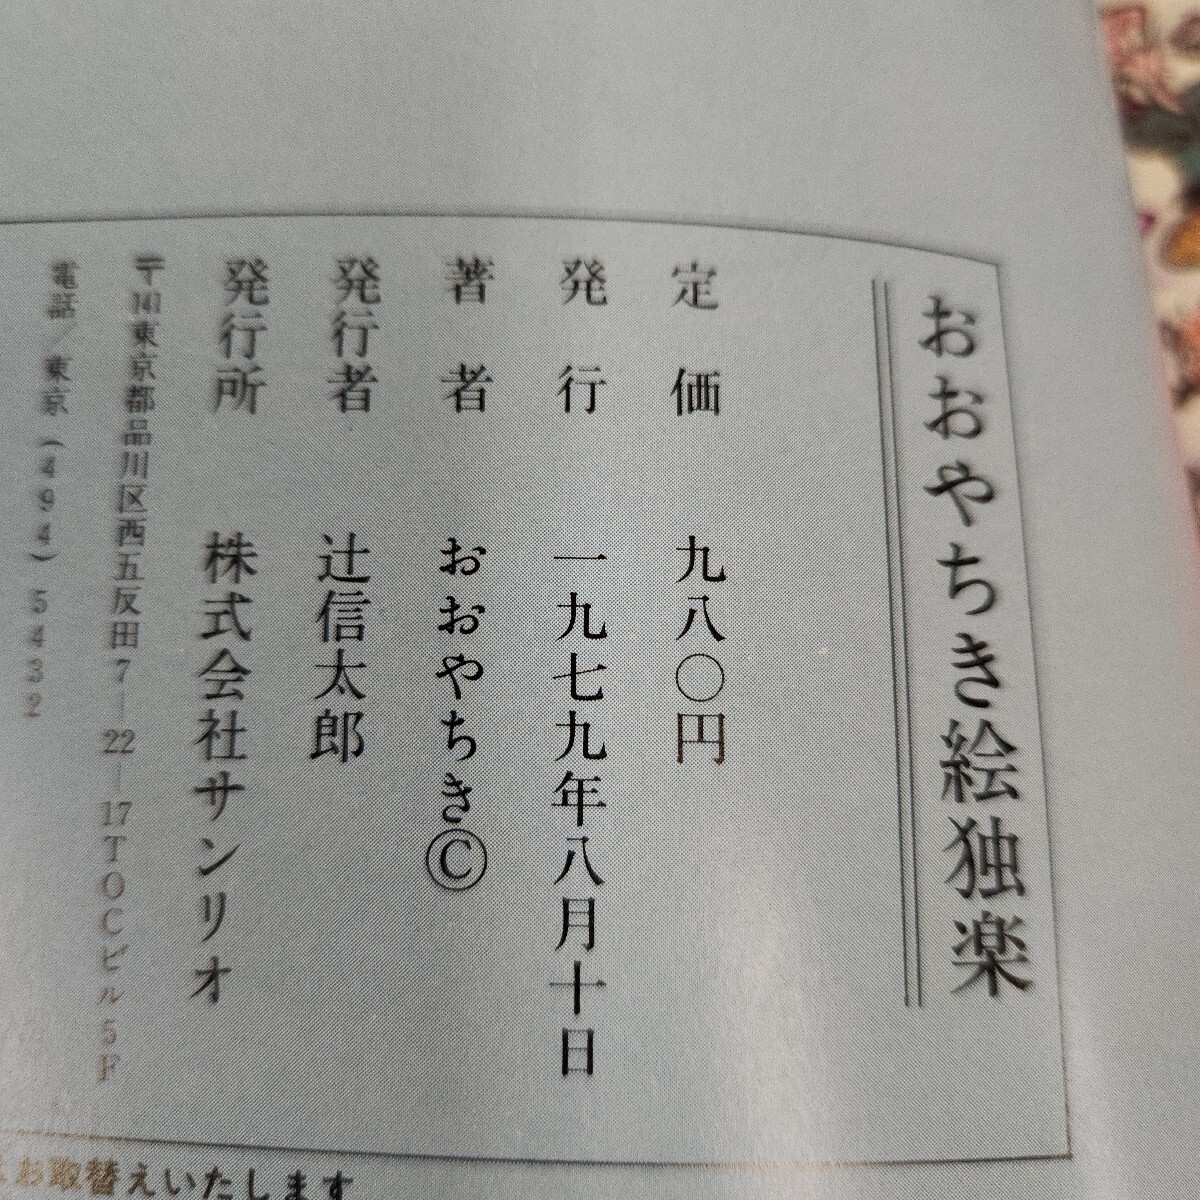 おおやちき絵独楽
定価 九八〇円
発行 一九七九年八月十日
著者 おおやちきⒸ
発行者 辻信太郎
発行所 株式会社サンリオ
〒141東京都品川区西五反田7―22―17TOCビル5F
電話／東京(494)5432
お取替えいたします